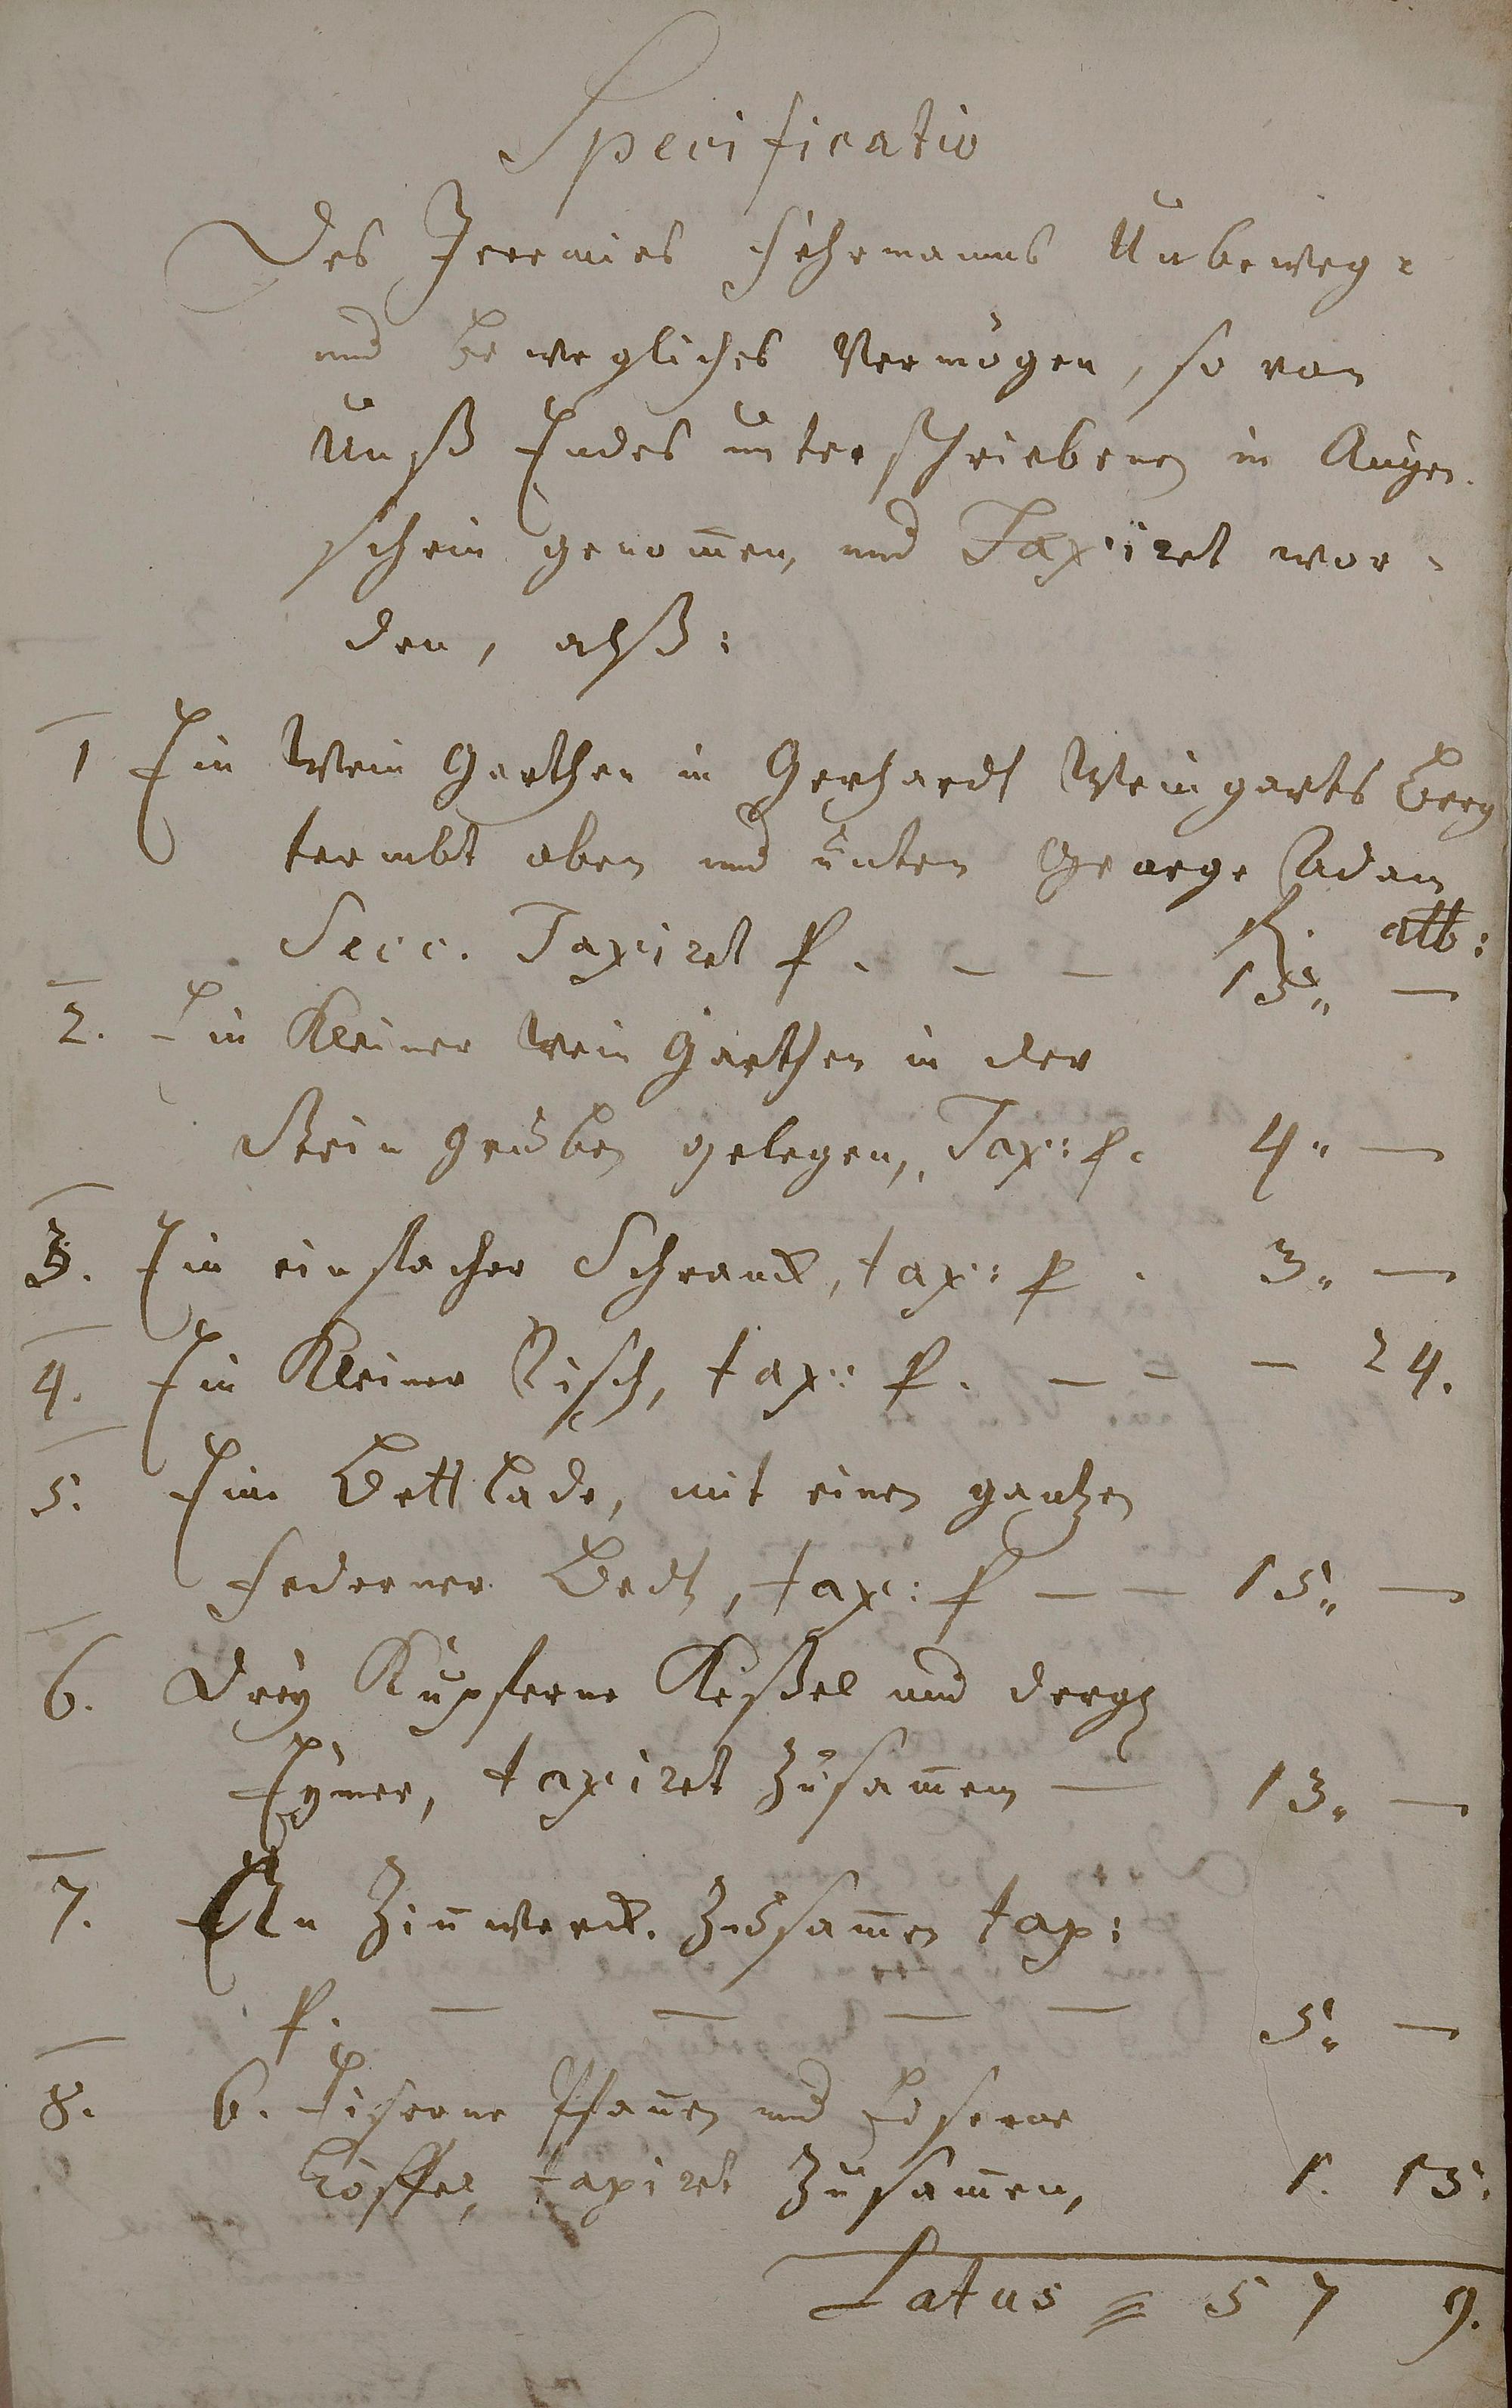 Specificatio
Des Jeremies Fehrmanns Unbeweg-
und bewegliches Vermögen, so von
Unß Endes unterschriebenen in Augen-
schein genom̅en, und Taxiret wor-
den, alß:
1 Ein Wein Garthen in Gerhardt Weingarts Berg
termbt oben und unten George Adam
Secc. Taxiret p. — — fl. alb:
15,, —
2. Ein Kleiner Wein Garthen in der
Stein gruben gelegen, Tax: p. 4,, —
3. Ein einfacher Schranck, tax: p . 3,, —
4. Ein Kleiner Tisch, tax: p. — — — 24.
5. Eine Bettlade, mit einen gantzen
Federner Bedt, tax: p — — 15,, —
6. Drey Kupferne Keßel und dergl
Eymer, taxiret Zusam̅en — 13,, —
7. An Zin̅werck. Zusam̅en tax:
p. — — — — 5,, —
8. 6. Eiserne Pfan̅en und Eyserne
Löffel, taxiret Zusam̅en, 1. 15:
Latus = 57 9.